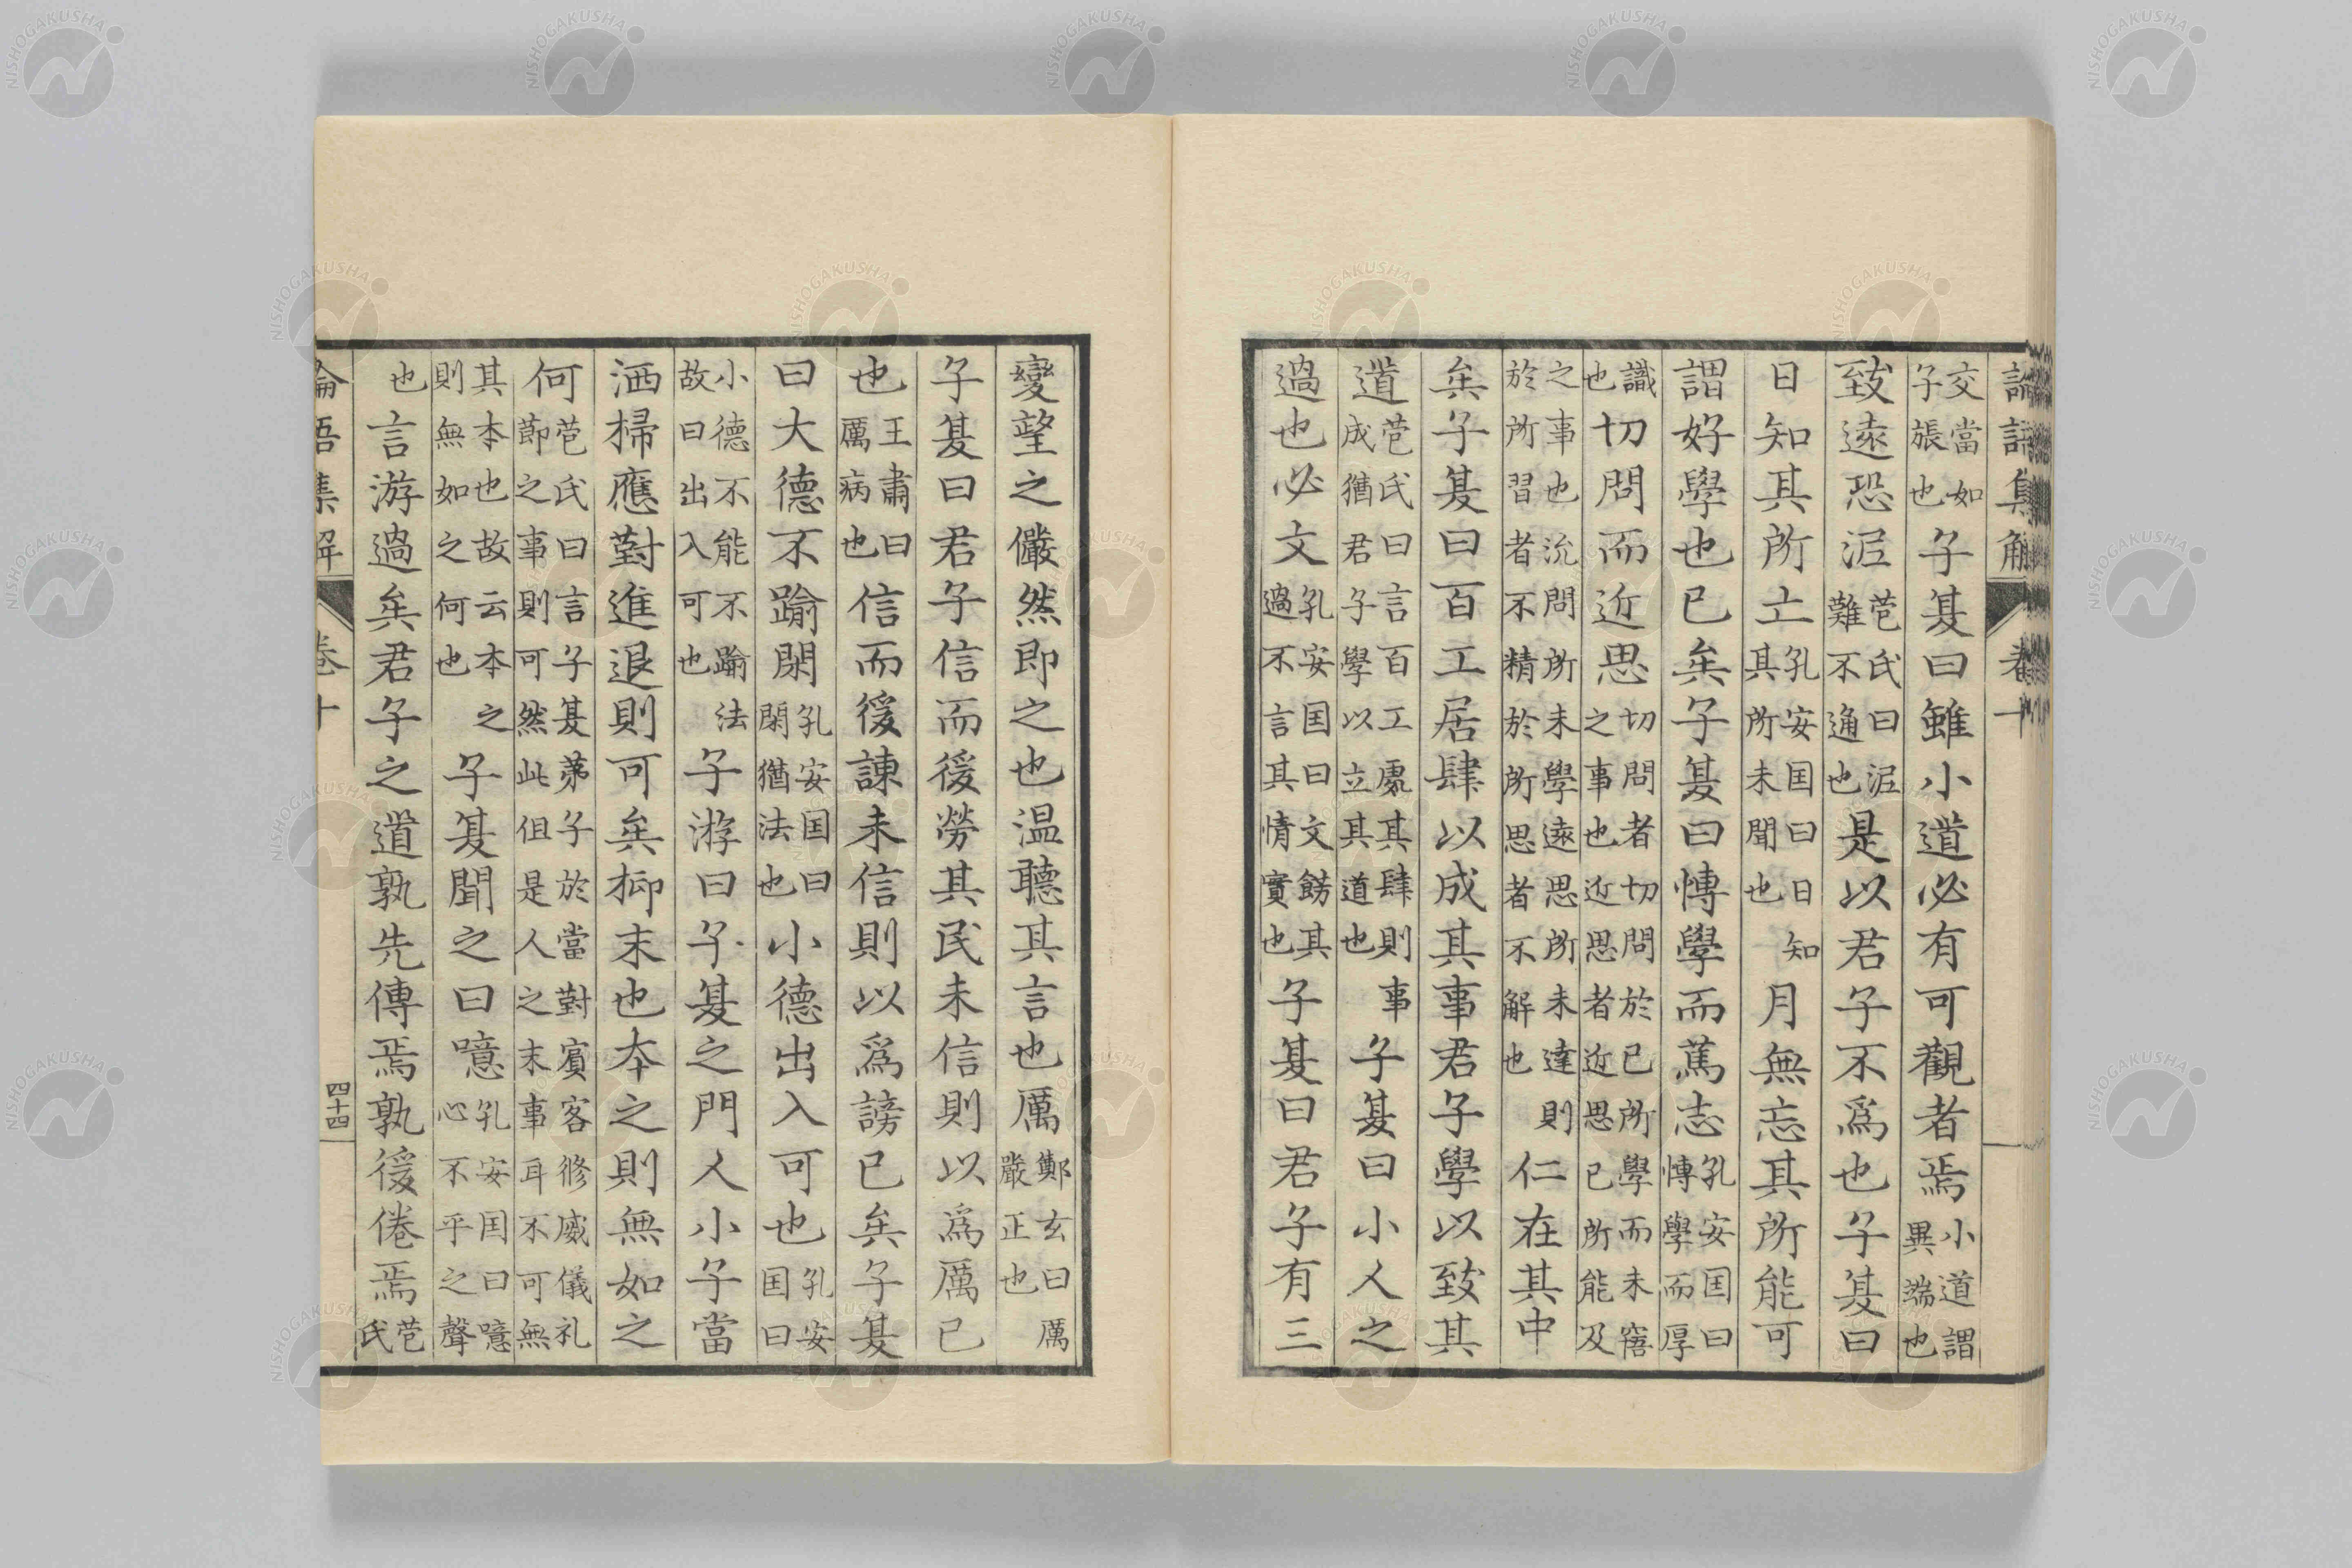 論語集解 卷十
交當如子張也子夏曰雖小道必有可觀者焉小道謂異端也
致遠恐泥苞氏曰泥難不通也是以君子不爲也子夏曰
日知其所亡孔安国曰日知其所未聞也月無忘其所能可
謂好學也已矣子夏曰博學而篤志孔安国曰博學而厚
識也切問而近思切問者切問於已所學而未窹之事也近思者近思已所能及
之事也汎問所未學遠思所未達則於所習者不精於所思者不解也仁在其中
矣子夏曰百工居肆以成其事君子學以致其
道苞氏曰言百工處其肆則事成猶君子學以立其道也子夏曰小人之
過也必文孔安国曰文餝其過不言其情實也子夏曰君子有三
變望之儼然即之也温聽其言也厲鄭玄曰厲嚴正也
子夏曰君子信而後勞其民未信則以爲厲已
也王肅曰厲病也信而後諫未信則以爲謗已矣子夏
曰大德不踰閑孔安国曰閑猶法也小德出入可也孔安国曰
小德不能不踰法故曰出入可也子游曰子夏之門人小子當
洒掃應對進退則可矣抑末也本之則無如之
何苞氏曰言子夏弟子於當對賓客修威儀礼節之事則可然此但是人之末事耳不可無
其本也故云本之則無如之何也子夏聞之曰噫孔安国曰噫心不平之聲
也言游過矣君子之道孰先傳焉孰後倦焉苞氏
論語集解 卷十 四十四
NISHOGAKUSHA